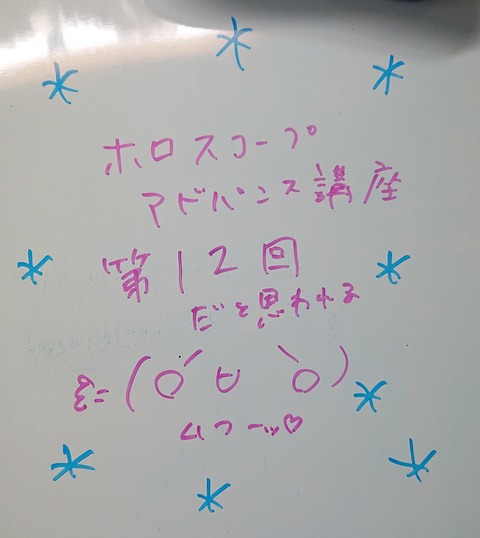 ホロスコープ
アドバンス講座
第12回
だと思われる
ε=(ó ᴗ ò)
ムフーッ♡